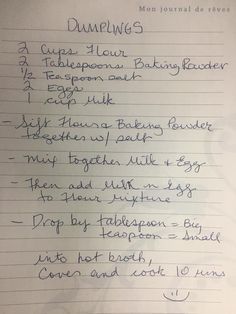 Mon journal de rêves
DUMPLINGS
2 Cups Flour
2 Tablespoons Baking Powder
1/2 Teaspoon salt
2 Eggs
1 cup Milk
- Sift Flour & Baking Powder
together w/ salt
- Mix together Milk & Egg
- Then add Milk n Egg
to Flour mixture
- Drop by tablespoon = Big
teaspoon = small
into hot broth,
Cover and cook 10 mins